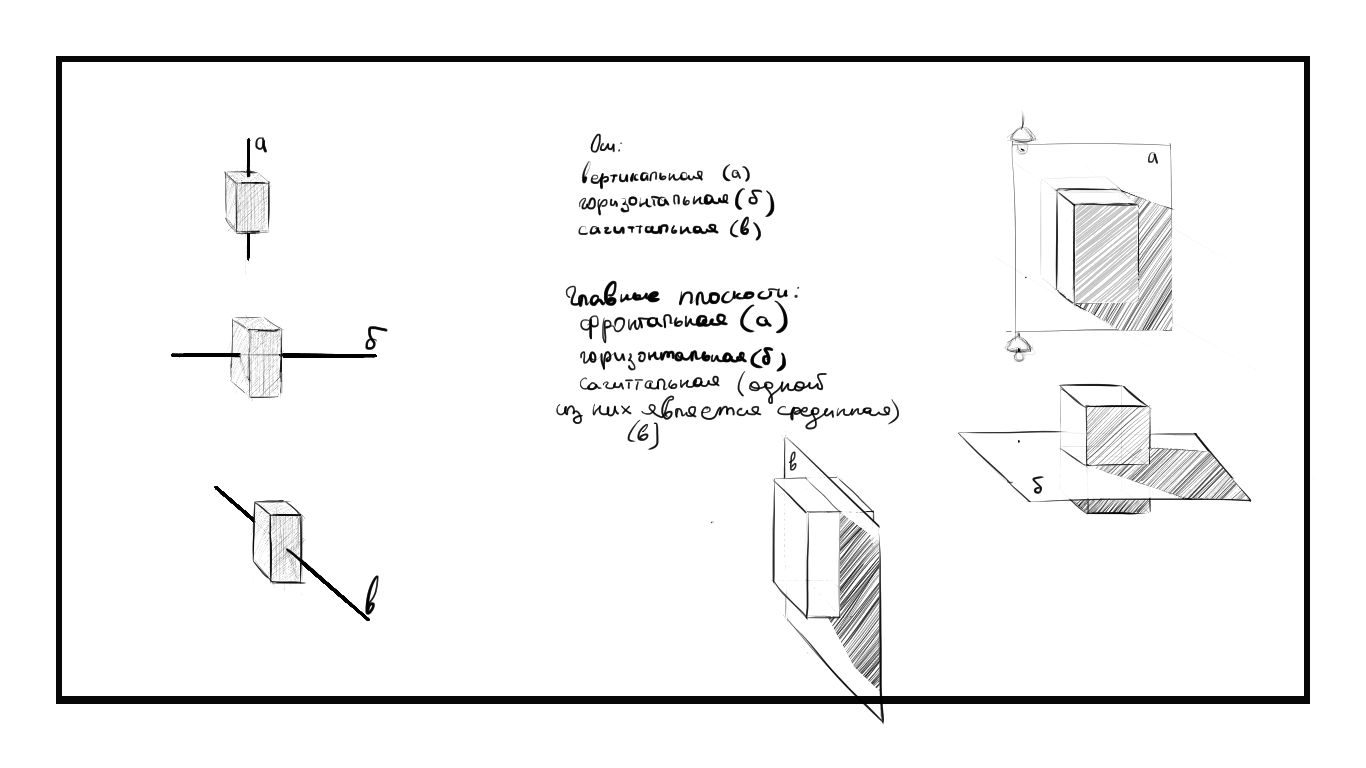 а
Оси:
вертикальная (а)
горизонтальная (б)
сагиттальная (в)
б
в
Главные плоскости:
фронтальная (а)
горизонтальная (б)
сагиттальная (одной
из них является срединная)
(в)
а
б
в